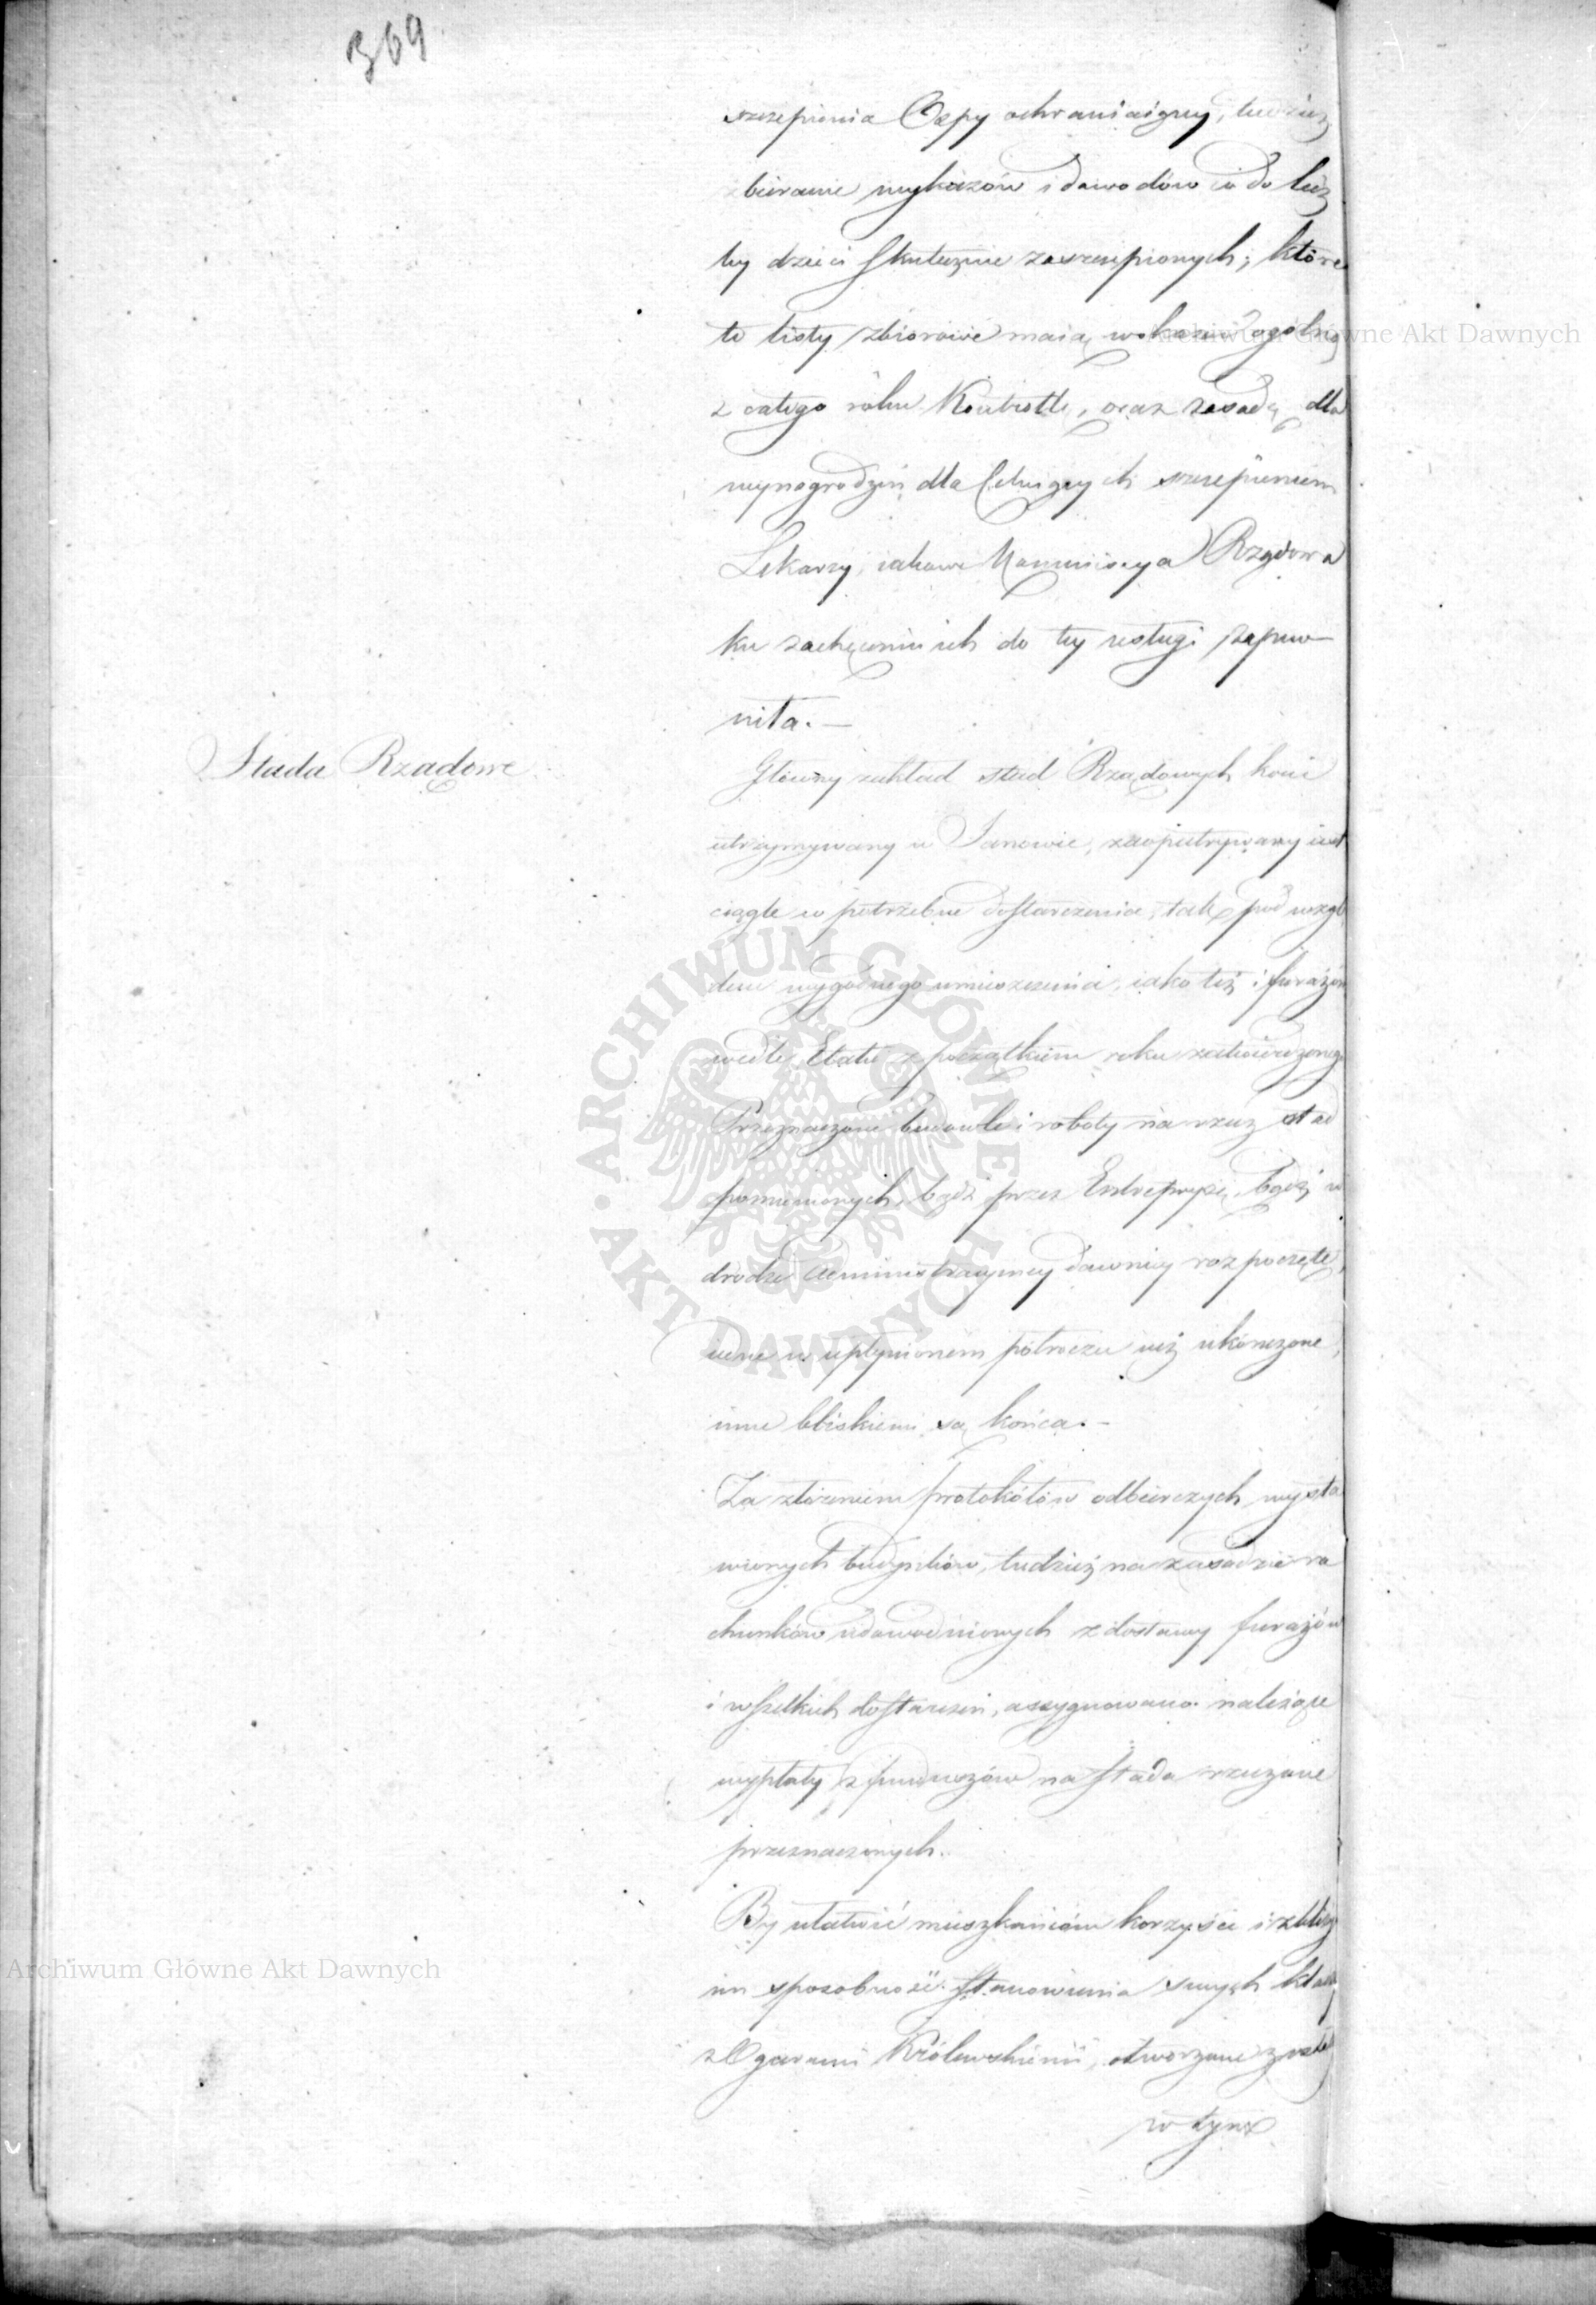 369
szczepienia Ospy ochraniaiącey, tudzież
zbieranie wykazów i dowodów co do licz
by dzieci skutecznie zaszczepionych; które
to listy zbiorowe maią wskazać ogólną
z całego roku Kontrollę, oraz zasadę dla
wynagrodzeń dla celuiących szczepieniem
Lekarzy, iakowe Kommissya Rządowa
ku zachęceniu ich do tey usługi zapew-
niła.—
Stada Rządowe
Główny zakład stad Rządowych koni
utrzymywany w Janowie, zaopatrywany iest
ciągle w potrzebne dostarczenia, tak pod wzglę
dem wygodnego umieszczenia, iako też i furażów
wedle Etatu z początkiem roku zatwierdzonego
Przeznaczone budowle i roboty na rzecz stad
pomienionych, bądź przez Entrepryzę, bądź w
drodze administracyiney dawniey rozpoczęte,
iedne w upłynionem półroczu iuż ukończone,
inne bliskiemi są końca.—
Za złożeniem protokółów odbiorczych wysta
wionych budynków, tudzież na zasadzie ra
chunków udowodnionych z dostawy furażów
i wszelkich dostarczeń, assygnowano należące
wypłaty z funduszów na stada rzeczone
przeznaczonych.
By ułatwić mieszkańcom korzyści i zbliżyć
im sposobność stanowienia swych klaczy
z Ogierami Królewskiemi, otworzone zostały
w tym
Archiwum Główne Akt Dawnych
ARCHIWUM GŁÓWNE AKT DAWNYCH
Archiwum Główne Akt Dawnych